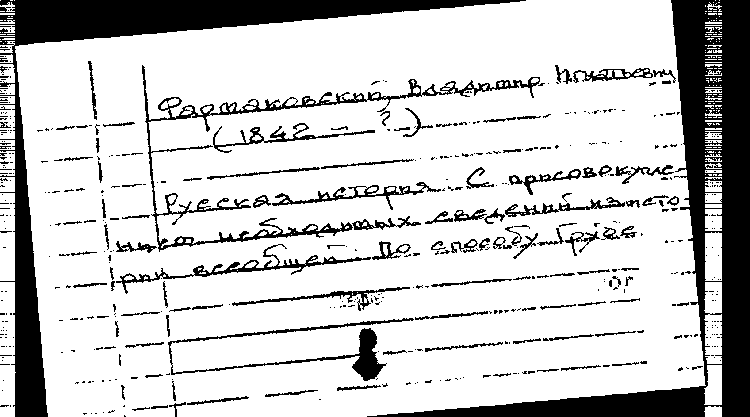 Фармаковский, Владимир Игнатьевич
(1842 – ?)
Русская история. С присовокупле-
нием необходимых сведений из исто-
рии всеобщей. По способу Грубе.
ог